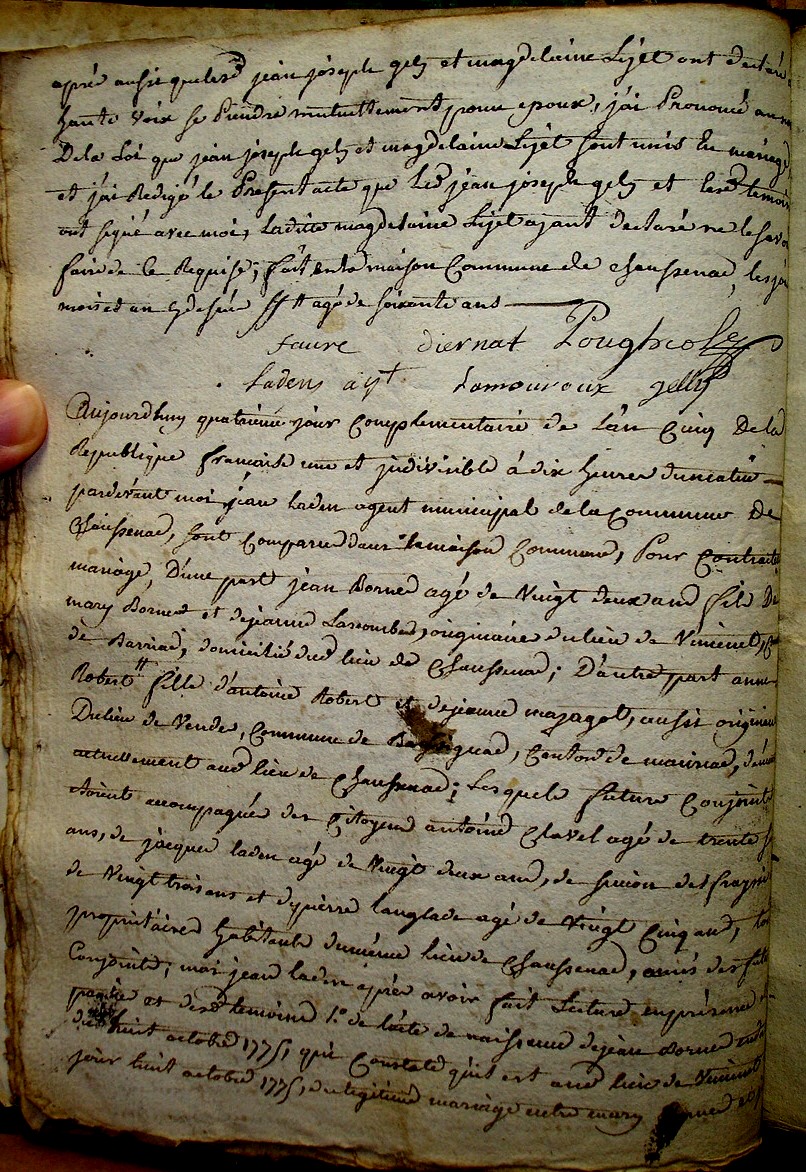 après aussi que lesd jean joseph gely et magdelaine Lijet ont declaré
haute voix se Prendre mutuellement pour epoux, j'ai Prononcé au
De la Loi que jean joseph gely et magdelaine Lijet sont unis En mariage
et j'ai Redigé le Present acte que Led jean joseph gely et lesd temoin
ont signé avec moi, Laditte magdelaine Lijet ajant declaré ne le savo
faire de ce Requise; fait en la maison Commune de chaussenac, les jo
mois et an que dessus agé de soixante ans
faure diernat Poughcol
Ladens agt Lamouroux gelly
Aujourdhuy quatrieme jour Complementaire de L'an Cinq De la
Republique francaise une et indivisible à dix heures du matin
pardevant moi jean Laden agent municipal de la Commune De
Chaussenac, sont Comparus dans la maison Commune, Pour Contracter
mariage, D'une part jean Borned agé de Vingt deux ans fils De
mary Borned et de jeanne Lascombes, originaire du lieu de Viminet,
de Barriac, domicilié dud lieu de Chaussenac; D'autre part anne
Robert fille d'antoine Robert et de jeanne mazagot, aussi origin
Du lieu de Vende, Commune de Canton de mauriac, dem
actuellement aud lieu de Chaussenac; Lesquels future Conjoints
etoient accompagnés des Citoyens antoine Clavel agé de trente
ans, de jacques laden agé de Vingt deux ans, de
de Vingt trois ans et de pierre Langlade agé de Vingt Cinq ans, to
propriétaires habitants du même lieu de Chaussenac, amis des fut
Conjoints; moi jean laden après avoir fait Lecture en présence
parties et desd temoins 1.° de l'acte de naissance de jean Borned
du huit octobre 1775, qui Constate qu'il est aud lieu de Viminet
jour huit octobre 1775, du legitime mariage entre mary Borned